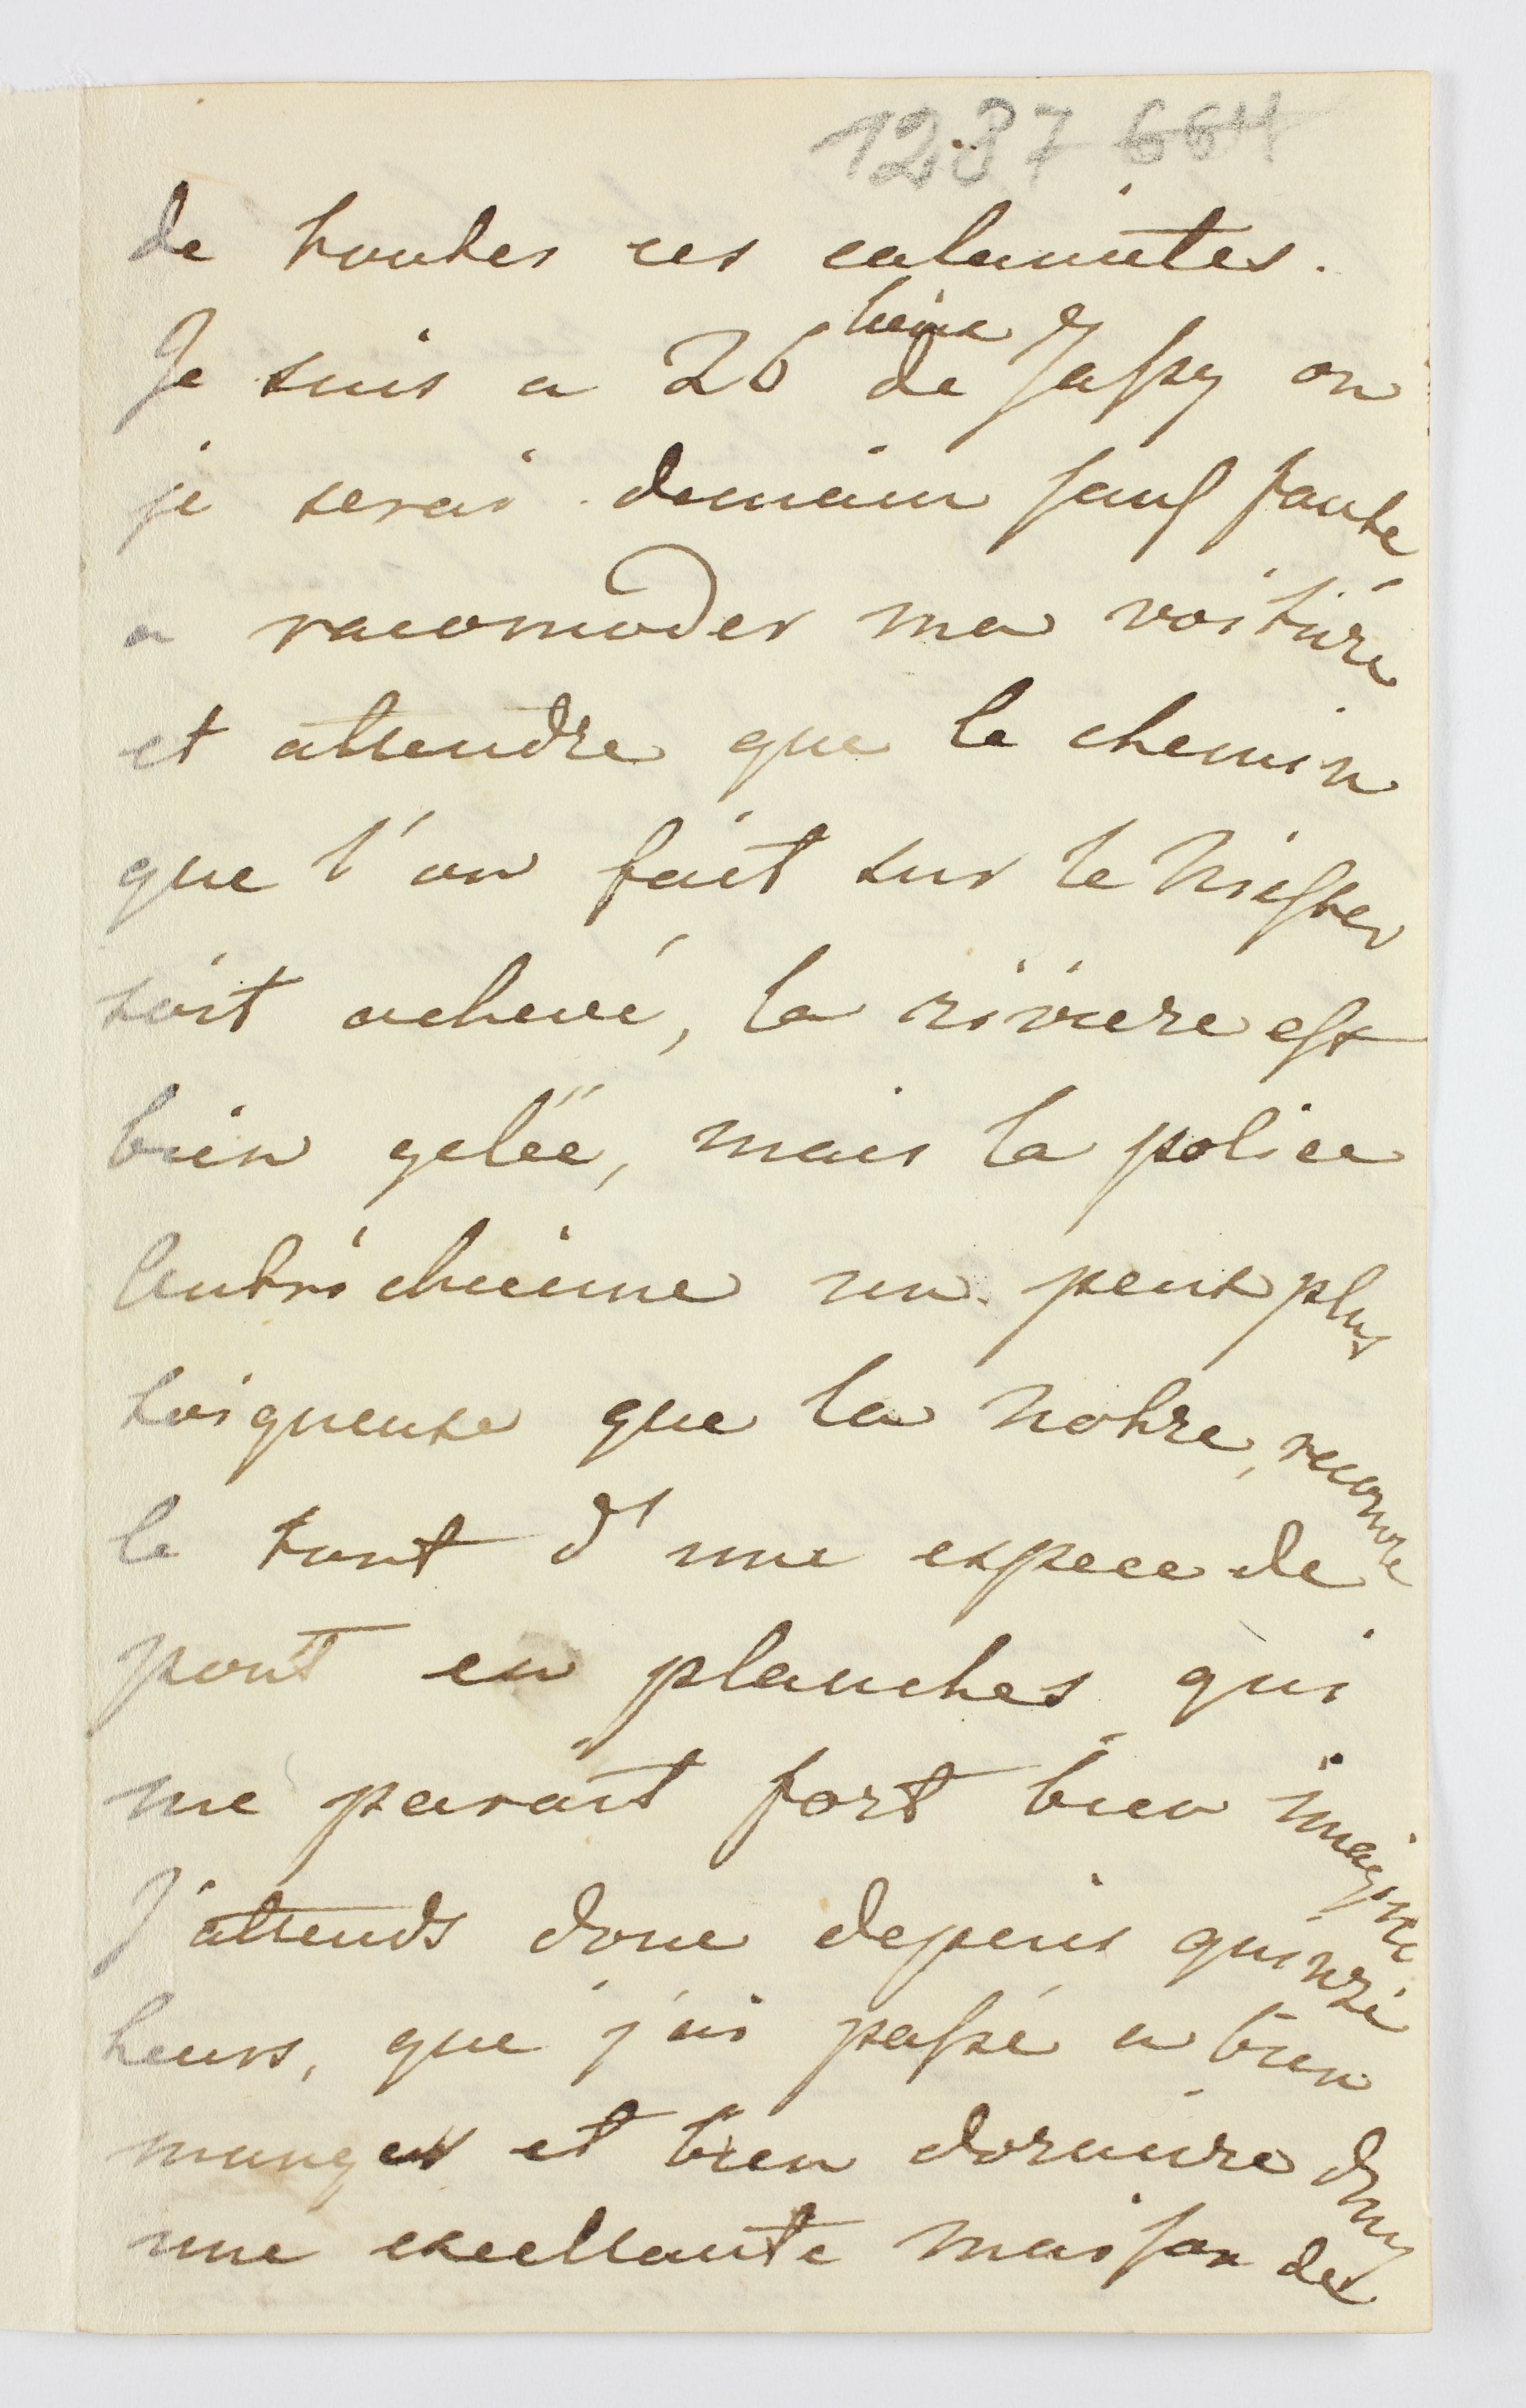 1237 664
de toutes ces calamites.
Je suis a 26 lieue de Jassy ou
je serai demain sauf faute
a racomoder ma voiture
et attendre que le chemin
que l'on fait sur le Niester
soit achevé, la riviere est
bien gelée, mais la police
Autrichienne un peut plus
soigneuse que la notre, recouvre
le tout d'une espece de
pont en planches qui
me parait fort bien imaginé
J'attends donc depuis quinze
heurs, que j'ai passé a bien
manger et bien dormire dans
une excellante maison de